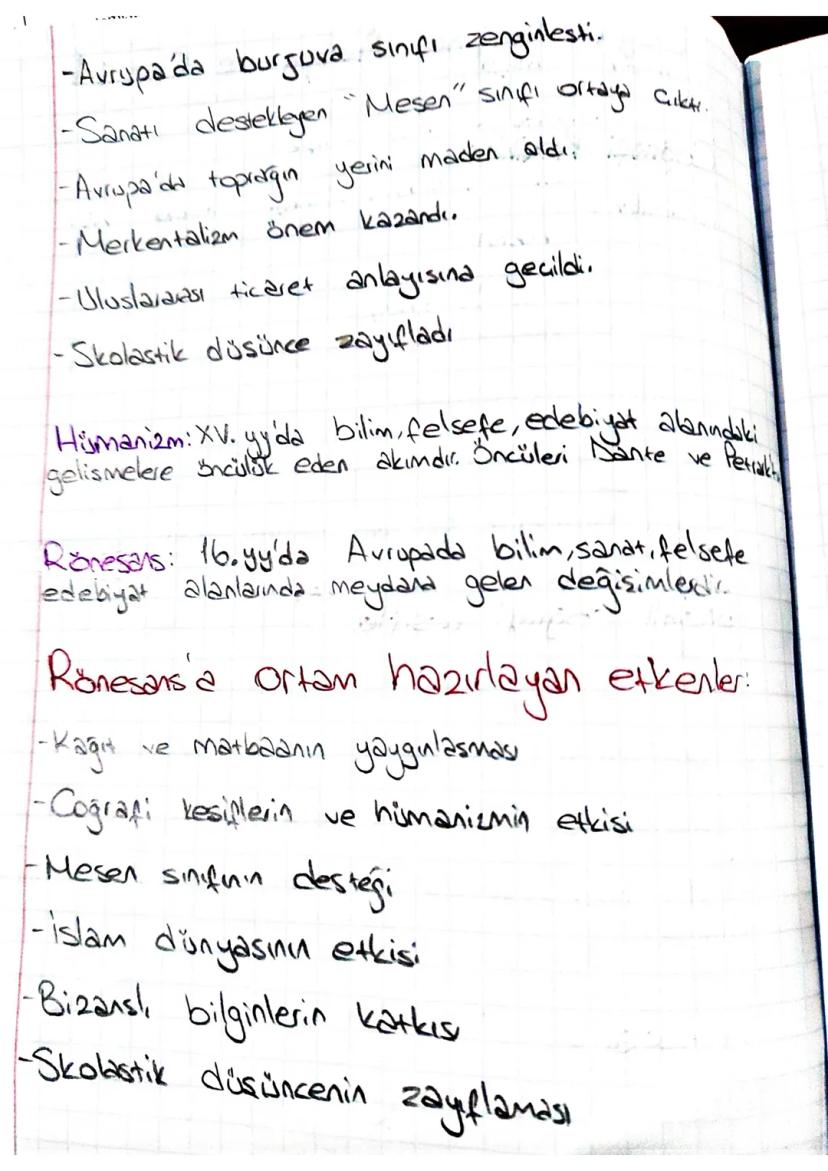 -Avrupa'da burjuva sınıfı zenginleşti.
-Sanatı destekleyen "Mesen" sınıfı ortaya çıktı.
-Avrupa'da toprağın yerini maden aldı.
-Merkentalizm önem kazandı.
-Uluslararası ticaret anlayışına geçildi.
-Skolastik düşünce zayıfladı
Hümanizm: XV. yy'da bilim, felsefe, edebiyat alanındaki
gelişmelere öncülük eden akımdır. Öncüleri Dante ve
Rönesans: 16.yy'da Avrupada bilim, sanat, felsefe
edebiyat alanlarında meydana gelen değişimlerdir.
Rönesans'a ortam hazırlayan etkenler:
-Kağıt ve matbaanın yaygınlaşması
-Coğrafi keşiflerin ve hümanizmin etkisi
-Mesen sınıfının desteği
-İslam dünyasının etkisi
-Bizanslı bilginlerin katkısı
-Skolastik düşüncenin zayıflaması